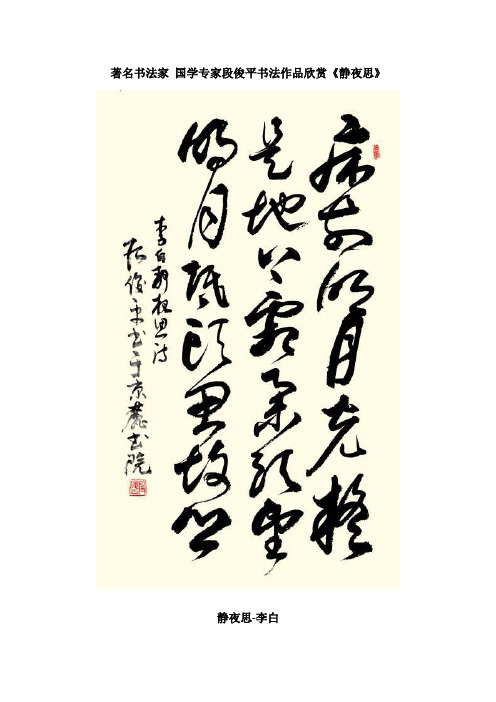 著名书法家 国学专家段俊平书法作品欣赏《静夜思》
床前明月光疑
是地上霜举头望
明月低头思故乡
李白静夜思诗
段俊平书于京麓书院
静夜思-李白